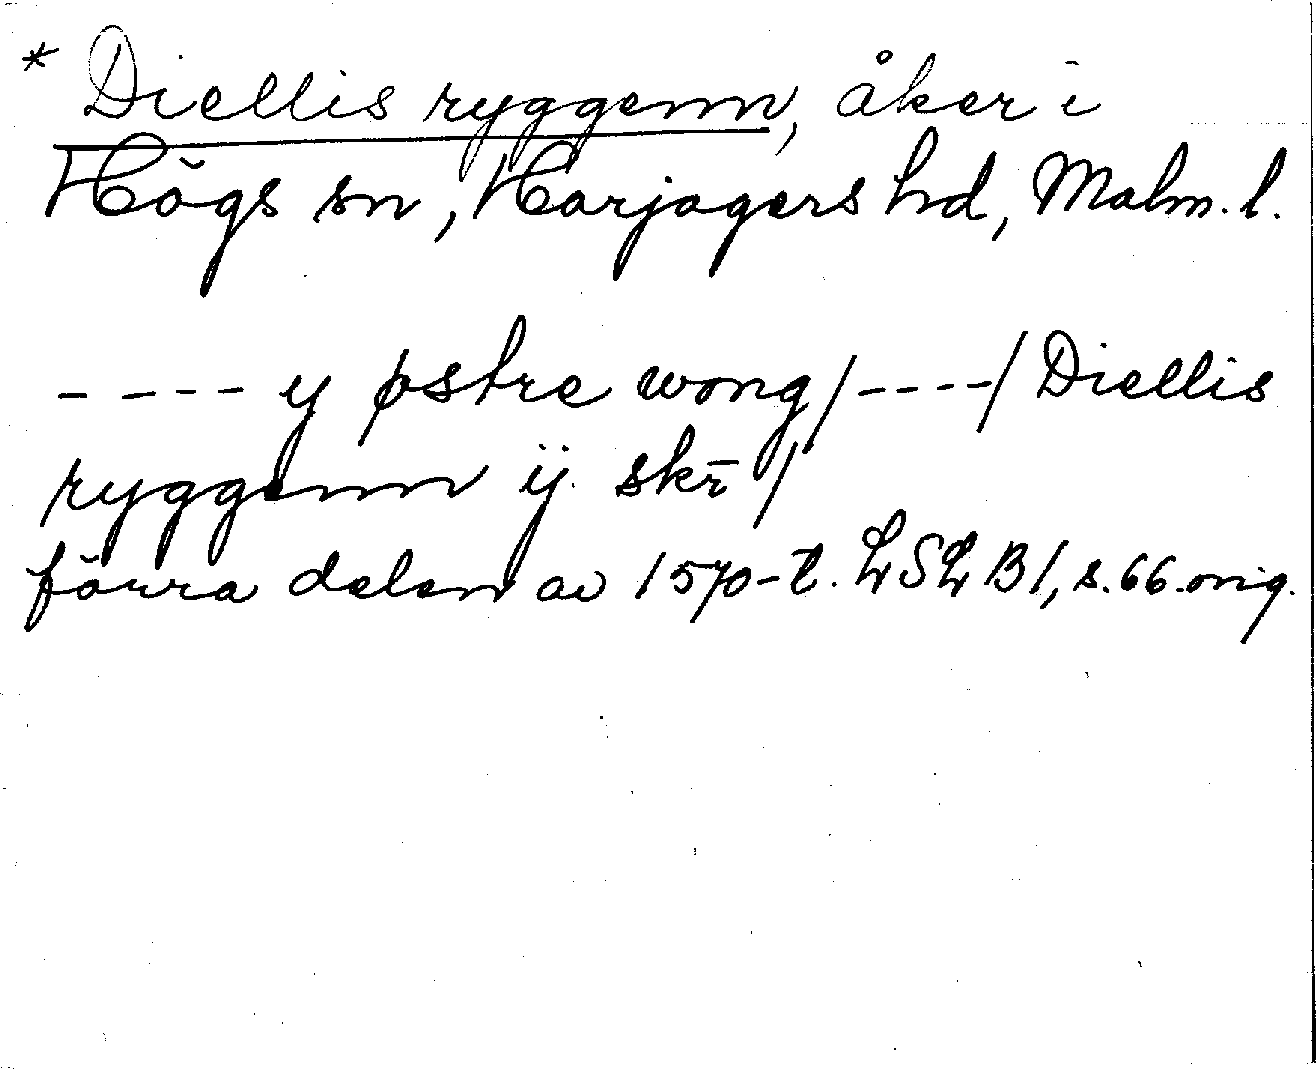 * Diellis ryggenn, åker i
Högs sn, Harjagers hd, Malm. l.
---- y østre wong/----/Diellis
ryggenn ij skr̄/
förra delen av 1570-t. LSLB1, s.66.orig.